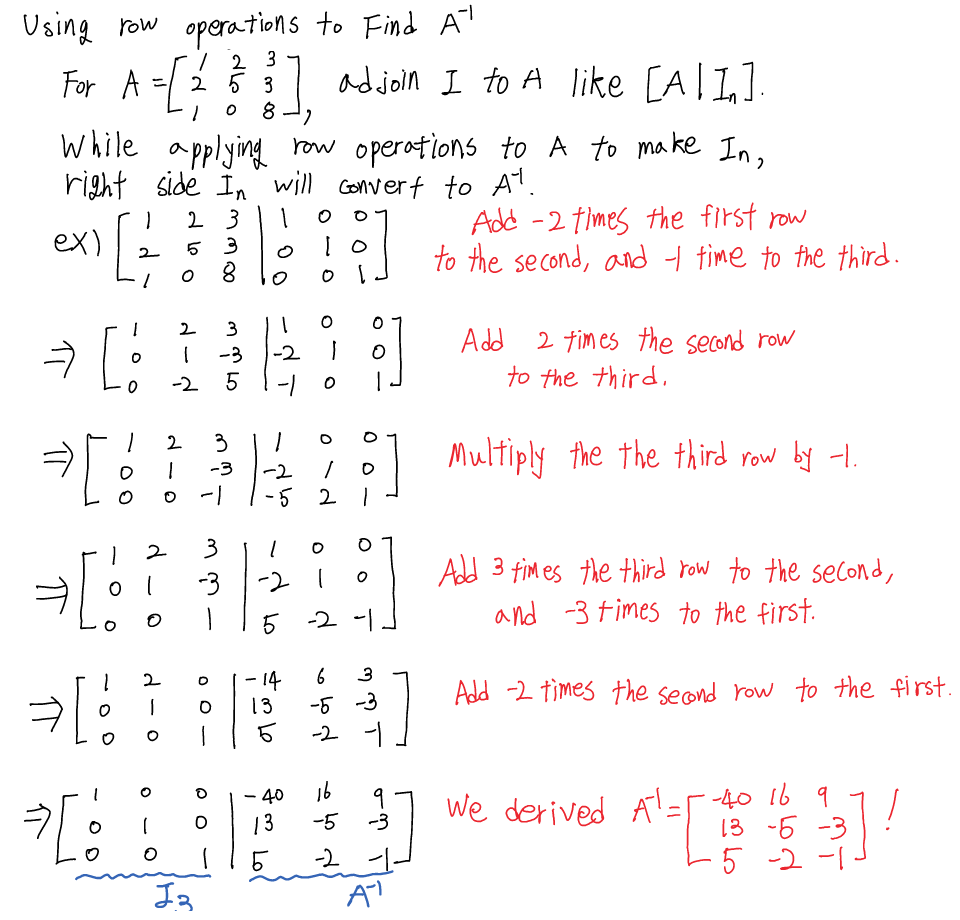 Using row operations to Find A⁻¹
For A = [1 2 3; 2 5 3; 1 0 8], adjoin I to A like [A | Iₙ].
While applying row operations to A to make In,
right side In will convert to A⁻¹.
ex) [1 2 3 | 1 0 0; 2 5 3 | 0 1 0; 1 0 8 | 0 0 1] Add -2 times the first row
to the second, and -1 time to the third.
⇒ [1 2 3 | 1 0 0; 0 1 -3 | -2 1 0; 0 -2 5 | -1 0 1] Add 2 times the second row
to the third.
⇒ [1 2 3 | 1 0 0; 0 1 -3 | -2 1 0; 0 0 -1 | -5 2 1] Multiply the the third row by -1.
⇒ [1 2 3 | 1 0 0; 0 1 -3 | -2 1 0; 0 0 1 | 5 -2 -1] Add 3 times the third row to the second,
and -3 times to the first.
⇒ [1 2 0 | -14 6 3; 0 1 0 | 13 -5 -3; 0 0 1 | 5 -2 -1] Add -2 times the second row to the first.
⇒ [1 0 0 | -40 16 9; 0 1 0 | 13 -5 -3; 0 0 1 | 5 -2 -1] We derived A⁻¹ = [-40 16 9; 13 -5 -3; 5 -2 -1] !
I₃ A⁻¹